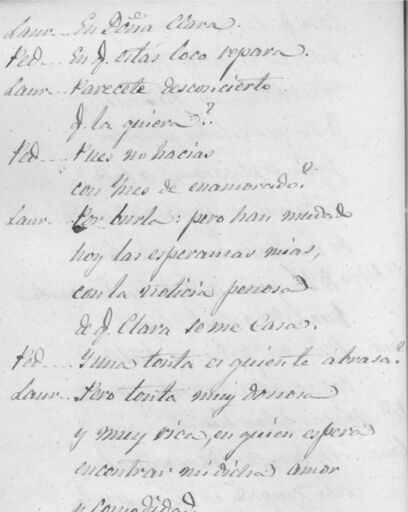 Laur... En Doña Clara.
Ped.... En q. estás loco repara.
Laur.. Parecete desconcierto
q. la quiera?
Ped.... Pues no hacias
con Ynes de enamorado?
Laur... Por burla: pero han mudado
hoy las esperanzas mias,
con la noticia penosa
de q. Clara se me Casa.
Ped.... Y una tonta es quien te abrasa?
Laur.. Pero tonta muy donosa
y muy rica, en quien espera
encontrar mi dicha amor
y comodidad.